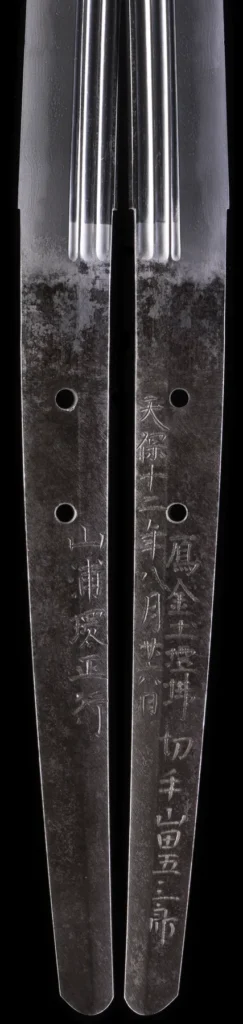 山浦環正行
天保十二年八月廿六日
鴈金土壇拂 切手山田五三郎